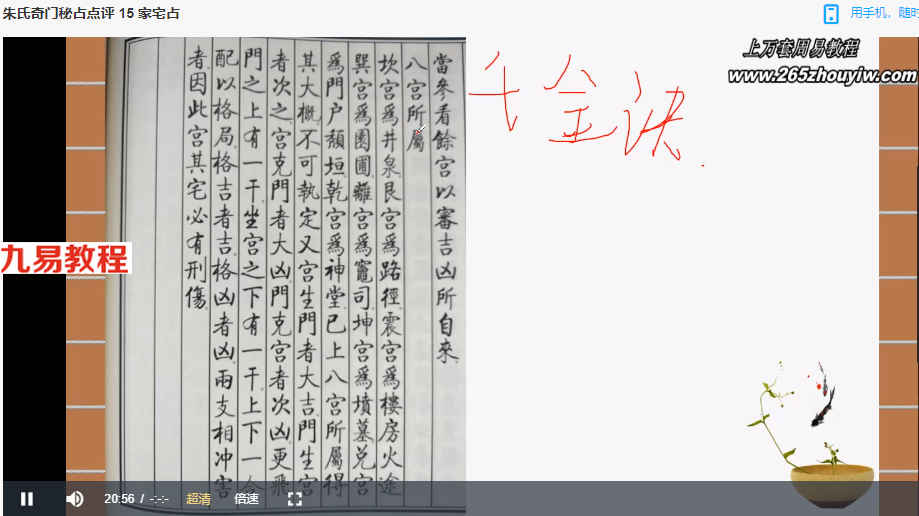 朱氏奇门秘占点评 15 家宅占
用手机，随时
上万套周易教程
www.265zhouyiw.com
當參看餘宫以審吉凶所自來
八宫所屬
坎宫為井泉艮宫為路徑震宫為楼房火途
巽宫為園圃離宫為竈司坤宫為墳墓兑宫
為門户頽垣乾宫為神堂已上八宫所屬得
其大概不可執定又宫生門者大吉門生宫
者次之宫克門者大凶門克宫者次凶更飛
門之上有一干坐宫之下有一干上下一合
配以格局格吉者吉格凶者凶兩支相冲害
者因此宫其宅必有刑傷
千金诀
九易教程
20:56 / -:-:-
超清
倍速